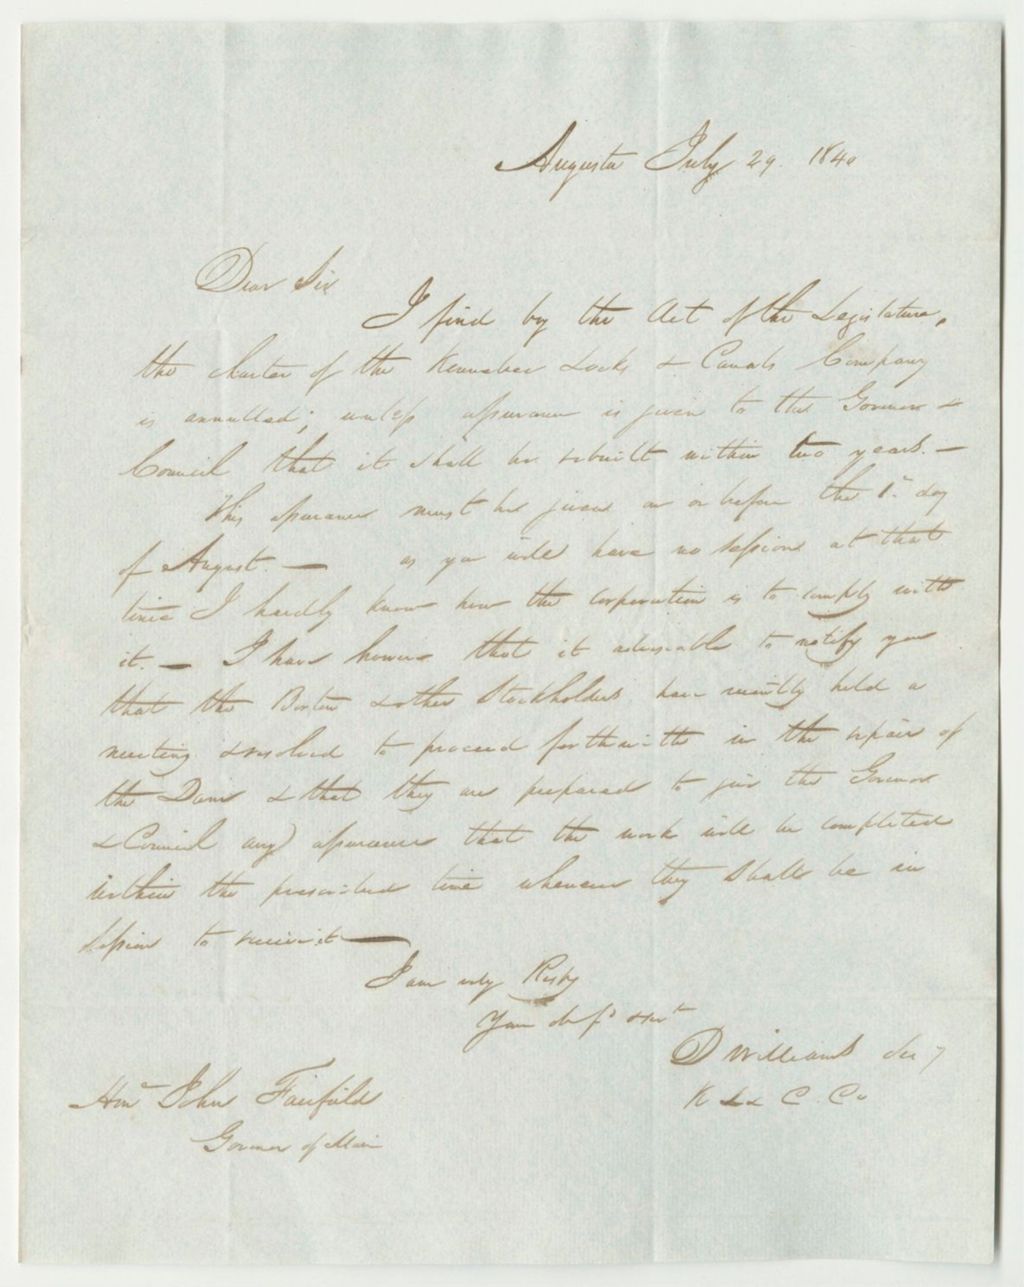 Augusta July 29. 1840
Dear Sir
I find by the Act of the Legislature,
the charter of the Kennebec Locks & Canals Company
is annulled; unless assurance is given to the Governor &
Council that it shall be rebuilt within two years. —
This assurance must be given on or before the 1st day
of August. — as you will have no session at that
time I hardly know how the corporation is to comply with
it. — I have however that it adviseable to notify you
that the Boston & other Stockholders have recently held a
meeting & resolved to proceed forthwith in the repair of
the Dam & that they are prepared to give the Governor
& Council any assurance that the work will be completed
within the prescribed time whenever they shall be in
session to receive it —
I am very Resty
Your Obt Servt
D Williams Secy
K L & C Co
Hon John Fairfield
Governor of Maine